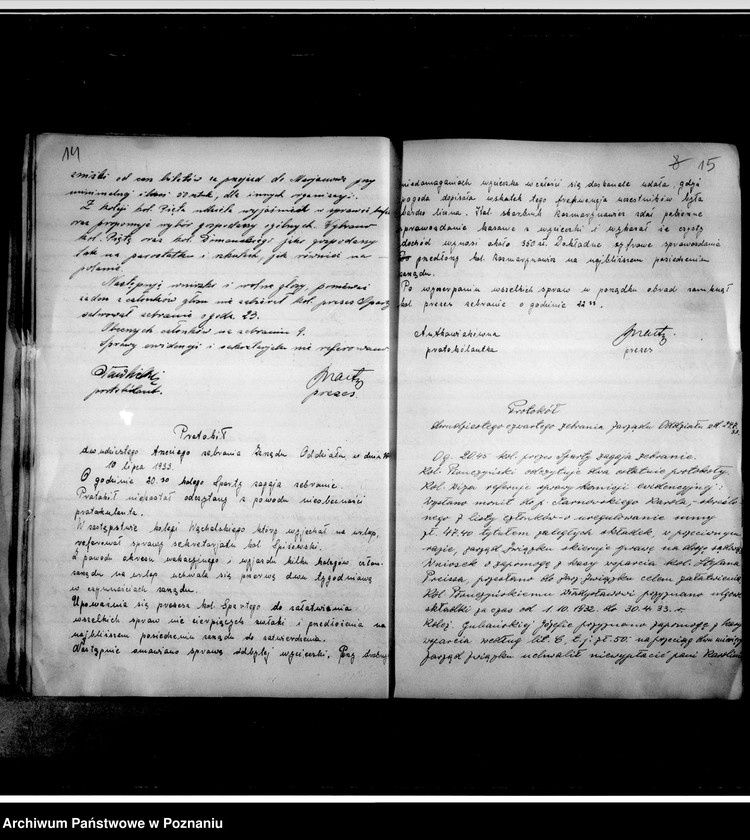 14
zniżki od cen biletów za przejazd do Warszawy przy
minimalnej ilości 50 osób, dla innych organizacyj.
Z kolei kol. Pięta udziela wyjaśnień w sprawie
oraz proponuje wybór gospodarzy ogólnych. Wybrano
kol. Piętę oraz kol. jako gospodarzy
tak na parostatku i statkach, jak również na
polanie.
Następują wnioski i wolne głosy, ponieważ
żaden z członków głosu nie zabierał kol. prezes Sparty
zebranie o godz. 23.
Obecnych członków na zebraniu 9.
Sprawy ewidencji i sekretarjatu nie referowano
protokólant.
prezes.
Protokół
dwudziestego trzeciego zebrania Zarządu Oddziału w dniu
10 lipca 1933.
O godzinie 20.30 kolega Sparty zagaja zebranie.
Protokół niezostał odczytany z powodu nieobecności
protokulanta.
W zastępstwie kolegi Wąchalskiego, który wyjechał na urlop,
referował sprawy sekretarjatu kol. Spiżewski.
Z powodu okresu wakacyjnego i wyjazdu kilku kolegów człon.
zarządu na urlop uchwala się przerwę dwu tygodniową
w czynnościach zarządu.
Upoważnia się prezesa kol. Spartego do załatwiania
wszelkich spraw nie cierpiących zwłoki i przedłożenia na
najbliższem posiedzeniu zarządu do zatwierdzenia.
Następnie omawiano sprawę odbytej wycieczki. Przy drobnych
8 15
niedomaganiach wycieczka w całości się doskonale udała, gdyż
pogoda dopisała wskutek tego frekwencja uczestników była
bardzo liczna. Kol. skarbnik Kaczmarkiewicz zdał pobieżne
sprawozdanie kasowe z wycieczki i wykazał że czysty
dochód wynosi około 350 zł. Dokładne cyfrowe sprawozdanie
przedłoży kol. Kaczmarkiewicz na najbliższem posiedzeniu
zarządu.
Po wyczerpaniu wszelkich spraw w porządku obrad zamknął
kol. prezes zebranie o godzinie 22
Antkowiakówna
protokólantka
prezes
Protokół
dwudziestego czwartego zebrania Zarządu Oddziału
O g. 20.45 kol. prezes Sparty zagaja zebranie.
Kol. Wawrzyński odczytuje dwa ostatnie protokoły.
Kol. referuje sprawy komisji ewidencyjnej:
Wysłano monit do p. Tarnowskiego Karola, – skreślo-
nego z listy członków – o uregulowanie sumy
zł. 47.40 tytułem zaległych składek, w przeciwnym
razie, zarząd Związku skieruje sprawę na drogę sądową.
Wniosek o zapomogę z kasy wsparcia kol. Stefana
Preissa, przesłano do Zarz. Związku celem załatwienia.
Kol. Wawrzyńskiemu Władysławowi przyznano ulgowe
składki za czas od 1.10.1932. do 30.4.33. r.
Koleż. Gubańskiej Józefie przyznano zapomogę z kasy
wsparcia według lit. C, t. j. zł. 50. na przeciąg dwu miesięcy
Zarząd Związku uchwalił niewypłacić pani
Archiwum Państwowe w Poznaniu